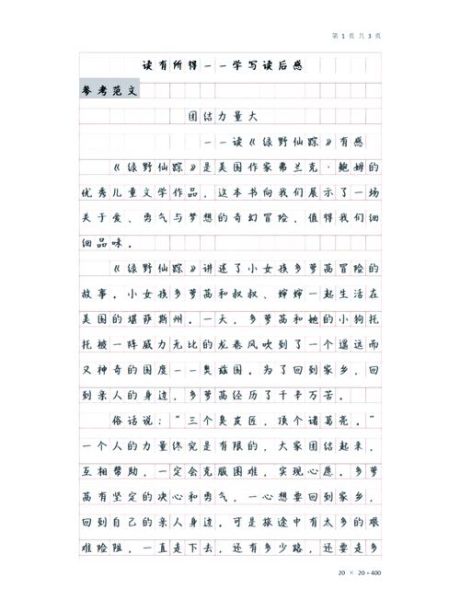 第 1 页 共 3 页
读有所得——学写读后感
参考范文
团结力量大
——读《绿野仙踪》有感
《绿野仙踪》是美国作家弗兰克·鲍姆的
优秀儿童文学作品，这本书向我们展示了一场
关于爱、勇气与梦想的奇幻冒险，值得我们细
细品味。
《绿野仙踪》讲述了小女孩多萝茜冒险的
故事，小女孩多萝茜和叔叔、婶婶一起生活在
美国的堪萨斯州。一天，多萝茜和她的小狗托
托被一阵威力无比的龙卷风吹到了一个遥远而
又神奇的国度——奥兹国。为了回到家乡，回
到亲人的身边，多萝茜经历了千辛万苦。
俗话说：“三个臭皮匠，顶个诸葛亮。”
一个人的力量终究是有限的，大家团结起来，
互相帮助，一定会克服困难，实现心愿。多萝
茜有坚定的决心和勇气，一心想要回到家乡，
回到自己的亲人身边，可是旅途中有太多的艰
难险阻，一直走下去，还有多少路，还要走多
20 × 20 = 400